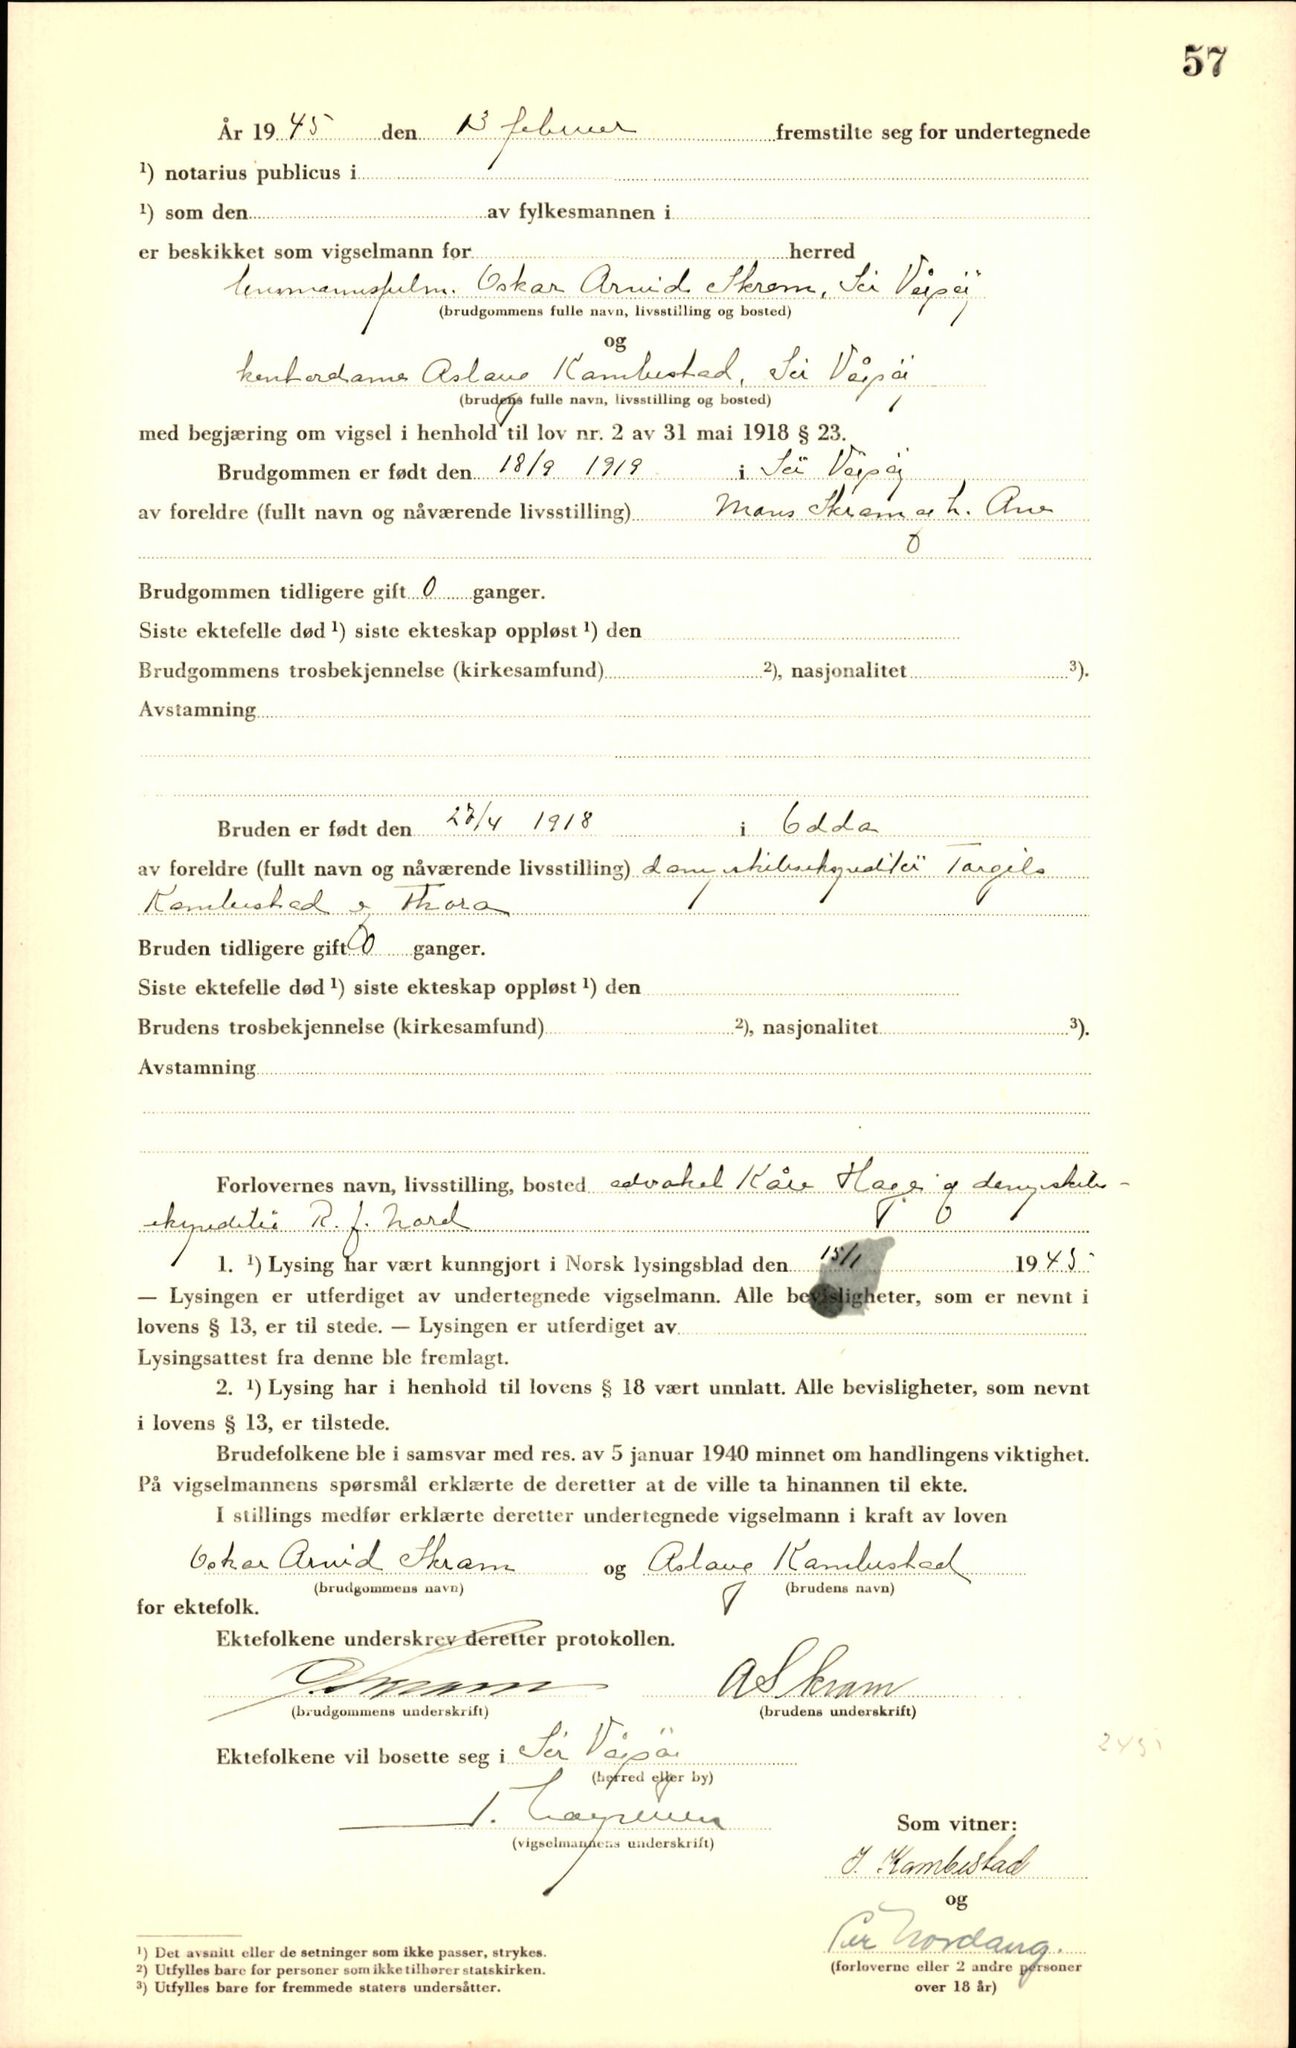 57
År 1945 den 13 februar fremstilte seg for undertegnede
¹) notarius publicus i
¹) som den av fylkesmannen i
er beskikket som vigselmann for herred
Oskar Arvid Skram, Sør Vågsøy
(brudgommens fulle navn, livsstilling og bosted)
og
kontordame Aslaug Kambestad, Sør Vågsøy
(brudens fulle navn, livsstilling og bosted)
med begjæring om vigsel i henhold til lov nr. 2 av 31 mai 1918 § 23.
Brudgommen er født den 18/9 1919 i Sør Vågsøy
av foreldre (fullt navn og nåværende livsstilling) Mons Skram og h. Ane
Brudgommen tidligere gift 0 ganger.
Siste ektefelle død ¹) siste ekteskap oppløst ¹) den
Brudgommens trosbekjennelse (kirkesamfund) ²), nasjonalitet ³).
Avstamning
Bruden er født den /4 1918 i Odda
av foreldre (fullt navn og nåværende livsstilling) dampskibsekspeditør Torgils
Kambestad og Thora
Bruden tidligere gift 0 ganger.
Siste ektefelle død ¹) siste ekteskap oppløst ¹) den
Brudens trosbekjennelse (kirkesamfund) ²), nasjonalitet ³).
Avstamning
Forlovernes navn, livsstilling, bosted advokat Kåre Hage og dampskibs-
ekspeditør R. J. Nord
1. ¹) Lysing har vært kunngjort i Norsk lysingsblad den 15/1 1945
— Lysingen er utferdiget av undertegnede vigselmann. Alle bevisligheter, som er nevnt i
lovens § 13, er til stede. — Lysingen er utferdiget av
Lysingsattest fra denne ble fremlagt.
2. ¹) Lysing har i henhold til lovens § 18 vært unnlatt. Alle bevisligheter, som nevnt
i lovens § 13, er tilstede.
Brudefolkene ble i samsvar med res. av 5 januar 1940 minnet om handlingens viktighet.
På vigselmannens spørsmål erklærte de deretter at de ville ta hinannen til ekte.
I stillings medfør erklærte deretter undertegnede vigselmann i kraft av loven
Oskar Arvid Skram og Aslaug Kambestad
(brudgommens navn) (brudens navn)
for ektefolk.
Ektefolkene underskrev deretter protokollen.
O. Skram A Skram
(brudgommens underskrift) (brudens underskrift)
Ektefolkene vil bosette seg i Sør Vågsøy
(herred eller by)
(vigselmannens underskrift)
Som vitner:
J. Kambestad
og
Per Nordang.
(forloverne eller 2 andre personer
over 18 år)
¹) Det avsnitt eller de setninger som ikke passer, strykes.
²) Utfylles bare for personer som ikke tilhører statskirken.
³) Utfylles bare for fremmede staters undersåtter.